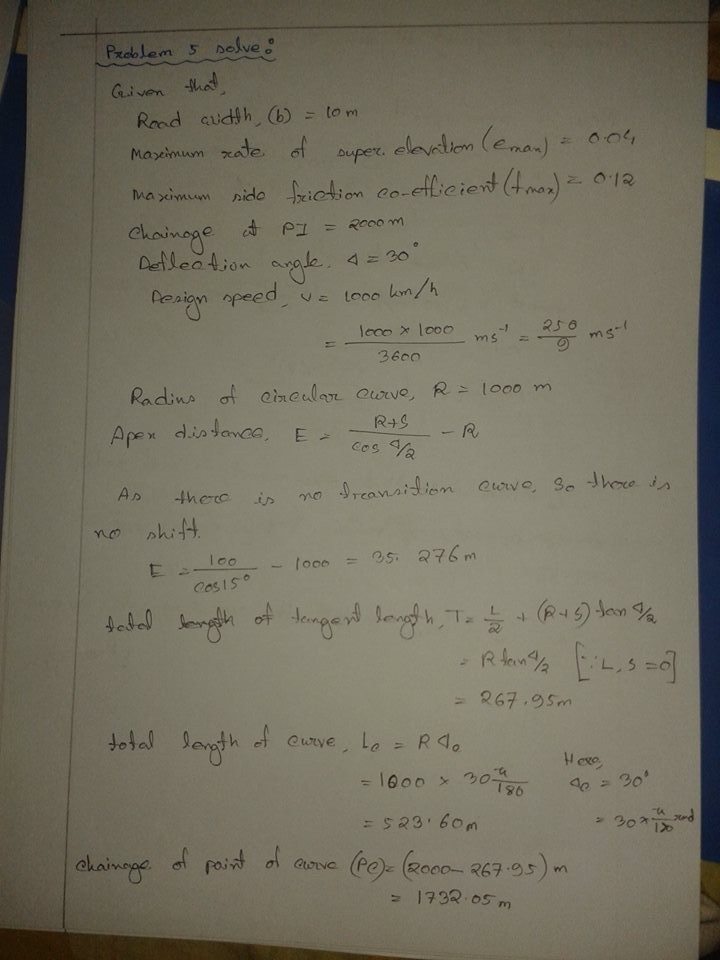 Problem 5 solve:
Given that,
Road width, (b) = 10 m
Maximum rate of super. elevation (emax) = 0.04
Maximum side friction co-efficient (fmax) = 0.12
Chainage at PI = 2000 m
Deflection angle. Δ = 30°
Design speed, v = 1000 km/h
= 1000 × 1000 / 3600 ms⁻¹ = 250/9 ms⁻¹
Radius of circular curve, R = 1000 m
Apex distance, E = R+S / cos Δ/2 - R
As there is no transition curve, so there is
no shift.
E = 100 / cos15° - 1000 = 35. 276 m
total length of tangent length, T = L/2 + (R+S) tan Δ/2
= R tan Δ/2 [∵ L, S = 0]
= 267.95 m
total length of curve, Lc = R Δc
= 1000 × 30 π/180
Here,
Δc = 30°
= 523.60 m
= 30 × π/180 rad
chainage of point of curve (PC) = (2000 - 267.95) m
= 1732.05 m